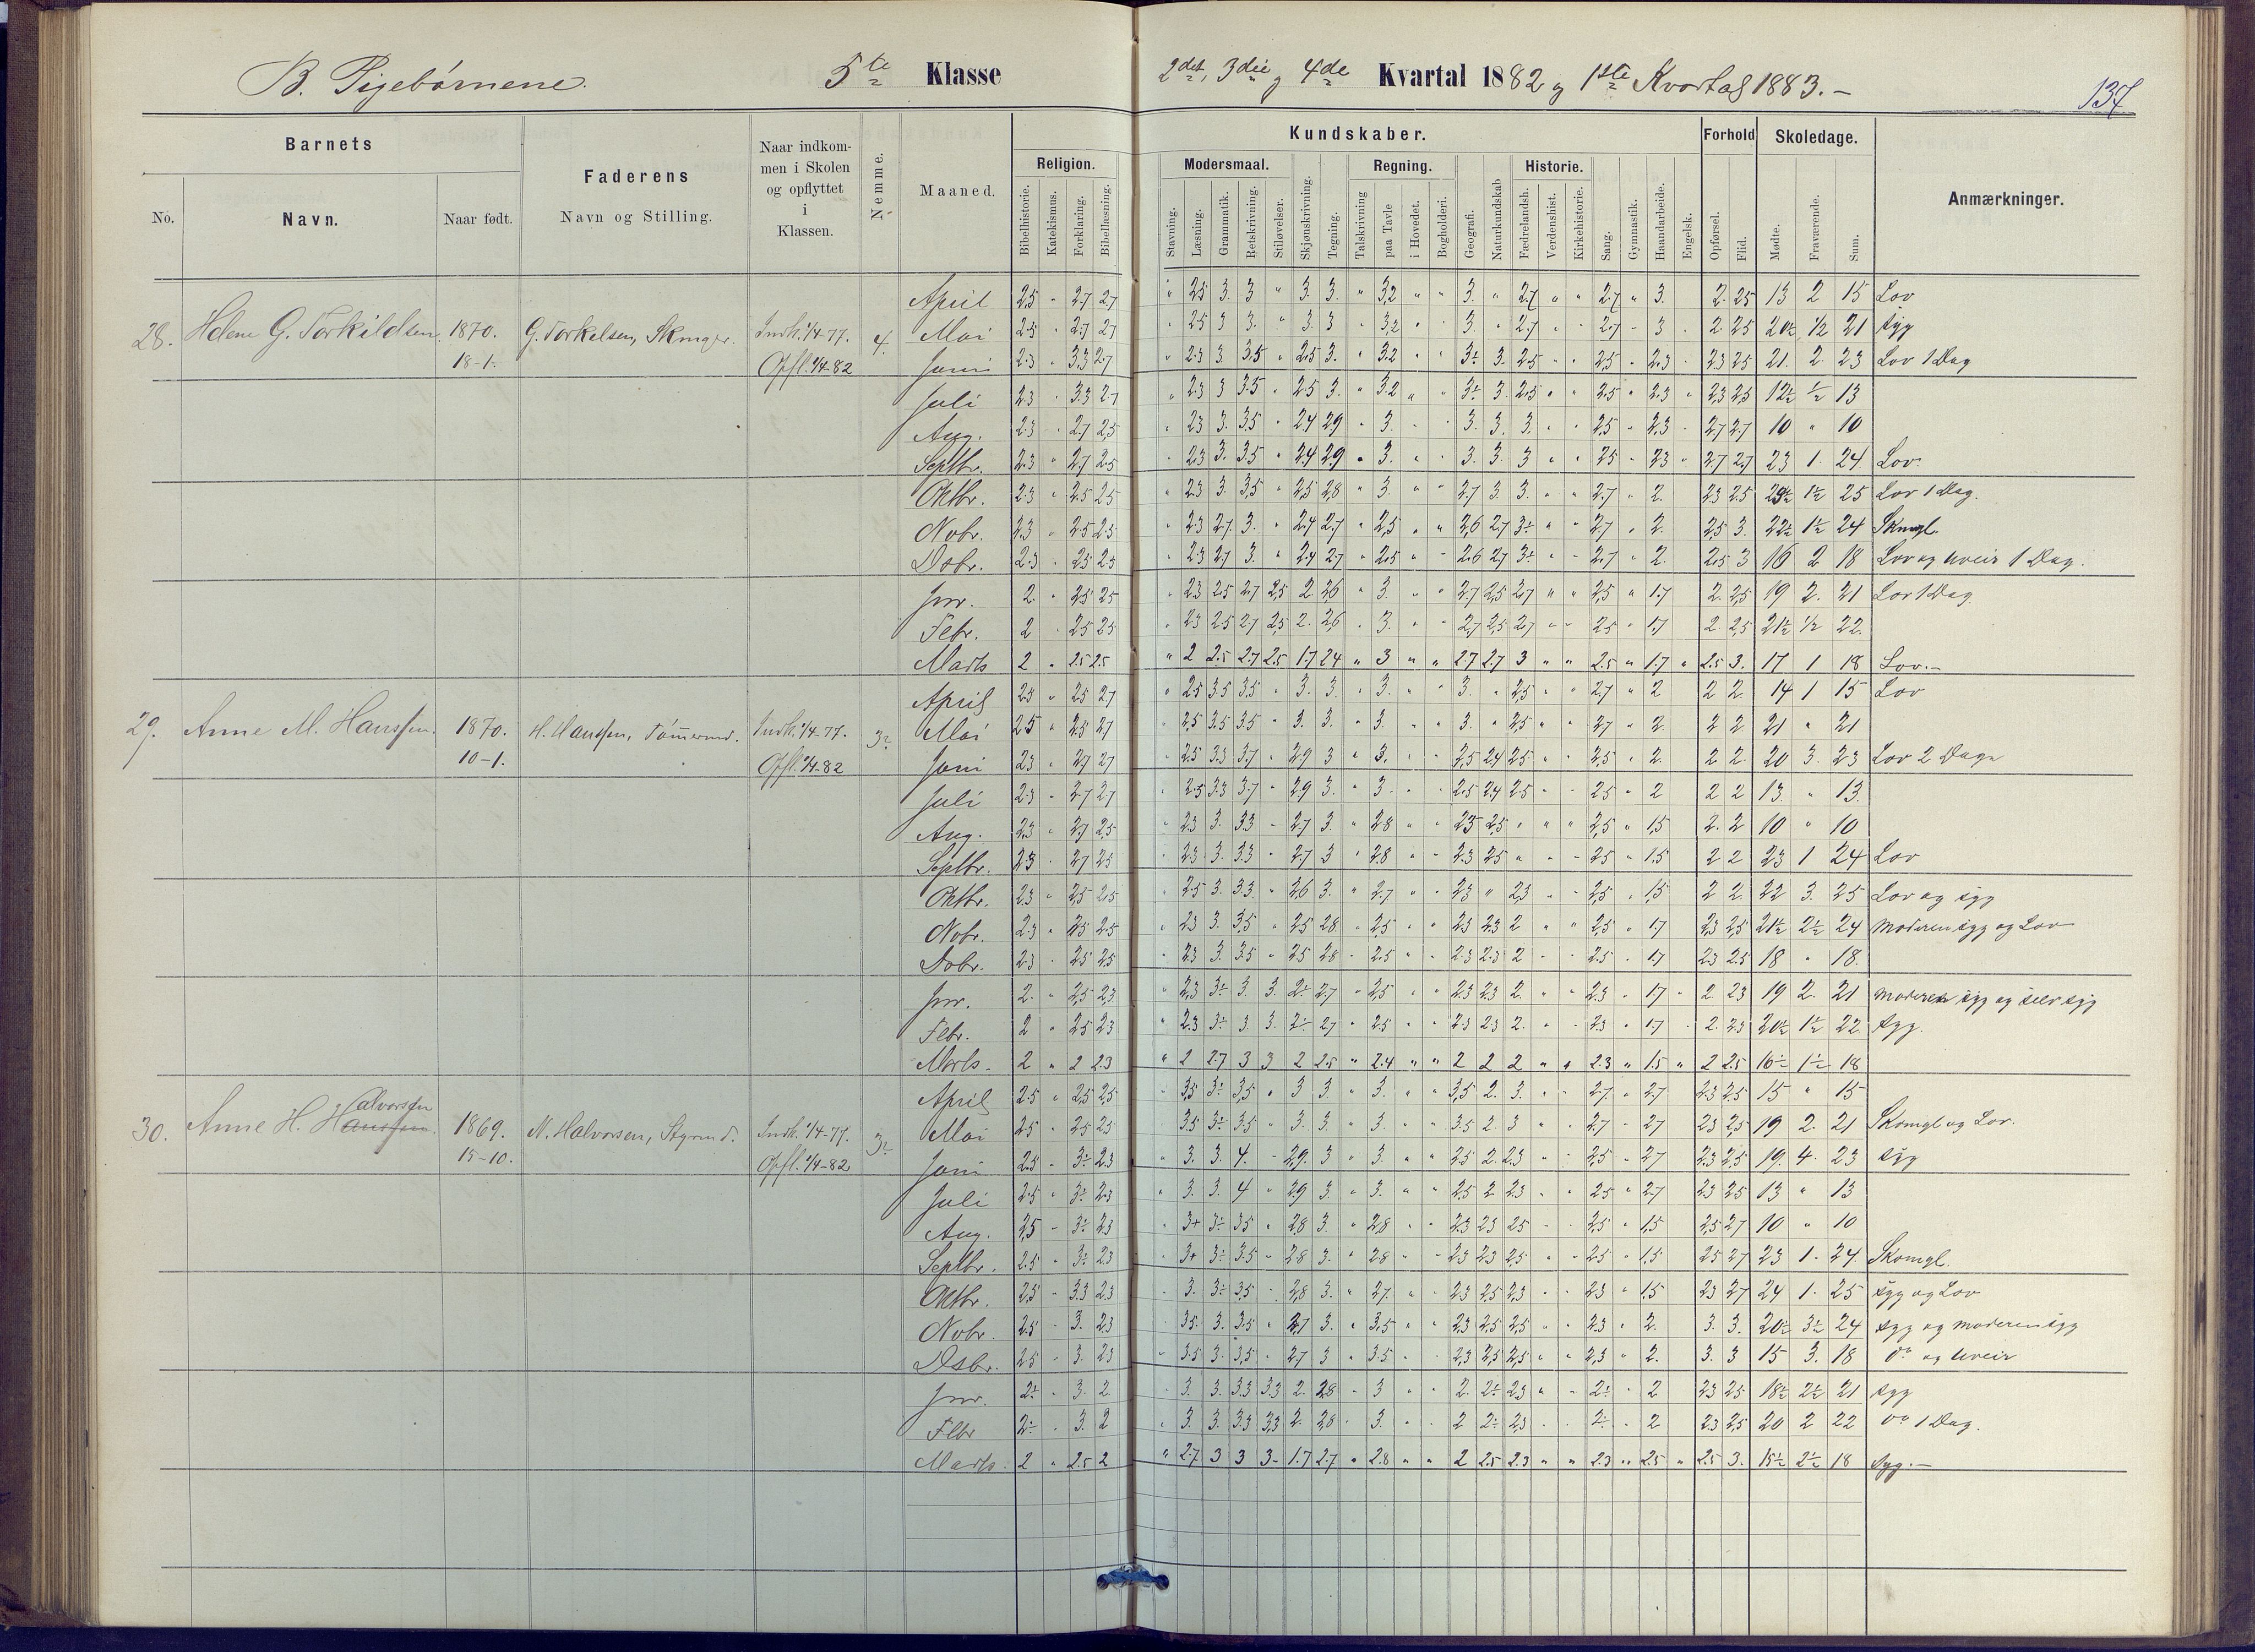 B. Pigebørnene. 5te Klasse
2det, 3die og 4de Kvartal 1882 og 1ste Kvartal 1883.-
137
Barnets
Faderens
Naar indkommen i Skolen og opflyttet i Klassen.
Nemme.
Maaned.
Kundskaber.
Forhold
Skoledage.
Anmærkninger.
No.
Navn.
Naar født.
Navn og Stilling.
Religion.
Modersmaal.
Regning.
Historie.
Bibelhistorie. Katekismus. Forklaring. Bibellæsning.
Stavning. Læsning. Grammatik. Retskrivning. Stiløvelser. Skjønskrivning. Tegning. Talskrivning paa Tavle i Hovedet. Bogholderi. Geografi. Naturkundskab Fædrelandsh. Verdenshist. Kirkehistorie. Sang. Gymnastik. Haandarbeide. Engelsk. Opførsel. Flid. Mødte. Fraværende. Sum.
28. Helene G. Torkildsen 1870. 18-1. G. Torkelsen, Indk. 1/4-77. Opfl. 1/4-82 4.
April 2,5 " 2,7 2,7 " 2,5 3. 3 " 3. 3. " 3,2 " " 3. " 2,7 " " 2,7 " 3. 2. 2,5 13 2 15 Lov
Mai 2,5 " 2,7 2,7 " 2,5 3 3. " 3. 3 " 3,2 " " 3. " 2,7 " " 2,7 " 3 2. 2,5 20½ ½ 21 syg
Juni 2,3 " 3,3 2,7 " 2,3 3 3,5 " 2,5 3. " 3,2 " " 3÷ 3. 2,5 " " 2,5 " 2,3 " 2,3 2,5 21. 2. 23 Lov 1 Dag
Juli 2,3 " 3,3 2,7 " 2,3 3 3,5 " 2,5 3. " 3,2 " " 3÷ 3. 2,5 " " 2,5 " 2,3 " 2,3 2,5 12½ ½ 13
Aug. 2,3 " 2,7 2,5 " 2,3 3. 3,5 " 2,4 2,9 " 3. " " 3. 3. 3. " " 2,5 " 2,3 " 2,7 2,7 10 " 10
Septbr. 2,3 " 2,7 2,5 " 2,3 3. 3,5 " 2,4 2,9 " 3. " " 3. 3. 3 " " 2,5 " 2,3 " 2,7 2,7 23 1. 24. Lov.
Oktbr. 2,3 " 2,5 2,5 " 2,3 3. 3,5 " 2,5 2,8 " 3. " " 2,7 3. 3. " " 2,7 " 2. 2,3 2,5 23½ 1½ 25 Lov 1 Dag.
Nobr. 2,3 " 2,5 2,5 " 2,3 2,7 3. " 2,4 2,7 " 2,5 " " 2,6 2,7 3÷ " " 2,7 " 2. 2,5 3. 22½ 1½ 24 Skmgl.
Dsbr. 2,3 " 2,5 2,5 " 2,3 2,7 3. " 2,4 2,7 " 2,5 " " 2,6 2,7 3÷ " " 2,7 " 2. 2,5 3 16 2 18 Lov og uveir 1 Dag.
Jnr. 2. " 2,5 2,5 " 2,3 2,5 2,7 2,5 2. 2,6 " 3. " " 2,7 2,5 2,7 " " 2,5 " 1,7 2. 2,5 19 2. 21 Lov 1 Dag.
Febr. 2 " 2,5 2,5 " 2,3 2,5 2,7 2,5 2. 2,6 " 3. " " 2,7 2,5 2,7 " " 2,5 " 1,7 2. 2,5 21½ ½ 22.
Marts 2 " 2.5 2.5 " 2 2.5 2.7 2.5 1.7 2.4 " 3 " " 2.7 2.7 3 " " 2.5 " 1.7 " 2.5 3. 17 1 18 Lov.-
29. Anne M. Hanssen. 1870. 10-1. H. Hanssen, Tømmermd. Indk. 1/4-77. Opfl. 1/4-82 3÷
April 2,5 " 2,5 2,7 " 2,5 3,5 3,5 " 3. 3. " 3. " " 3. " 2,5 " " 2,7 " 2 2 2. 14 1 15 Lov
Mai 2,5 " 2,5 2,7 " 2,5 3,5 3,5 " 3. 3. " 3. " " 3. " 2,5 " " 2,7 " 2. 2 2 21 " 21
Juni 2,3 " 2,7 2,7 " 2,5 3,3 3,7 " 2,9 3 " 3. " " 2,5 2,4 2,5 " " 2,5 " 2. 2 2. 20 3. 23 Lov 2 Dage
Juli 2,3 " 2,7 2,7 " 2,5 3,3 3,7 " 2,9 3. " 3. " " 2,5 2,4 2,5 " " 2,5 " 2 2 2 13. " 13.
Aug. 2,3 " 2,7 2,5 " 2,3 3. 3,3 " 2,7 3. " 2,8 " " 2,3 2,5 " " " 2,5 " 1,5 2. 2 10 " 10
Septbr. 2,3 " 2,7 2,5 " 2,3 3. 3,3 " 2,7 3 " 2,8 " " 2,3 2,5 " " " 2,5 " 1,5 2 2 23 1 24 Lov
Oktbr. 2,3 " 2,5 2,5 " 2,5 3. 3,3 " 2,6 3. " 2,7 " " 2,3 " 2,3 " " 2,5 " 1,5 2 2. 22 3. 25 Lov og syg
Nobr. 2,3 " 2,5 2,5 " 2,3 3. 3,5 " 2,5 2,8 " 2,5 " " 2,3 2,3 2 " " 2,5 " 1,7 2,3 2,5 21½ 2½ 24 moderen syg og Lov
Dsbr. 2,3 " 2,5 2,5 " 2,3 3. 3,5 " 2,5 2,8 " 2,5 " " 2,3 2,3 2 " " 2,5 " 1,7 2,3 2,5 18 " 18.
Jnr. 2. " 2,5 2,3 " 2,3 3÷ 3. 3. 2÷ 2,7 " 2,5 " " 2,3 2,3 2. " " 2,3 " 1,7 " 2. 2,3 19 2. 21 moderen syg og selv syg
Febr. 2 " 2,5 2,3 " 2,3 3÷ 3. 3. 2÷ 2,7 " 2,5 " " 2,3 2,3 2. " " 2,3 " 1,7 " 2. 2,3 20½ 1½ 22. syg.
Marts. 2 " 2 2.3 " 2 2.7 3 3 2 2.5 " 2.4 " " 2 2 2 " " 2.3 " 1.5 " 2 2.5 16½ 1½ 18
30. Anne H. Hanssen Halvorsen 1869. 15-10. N. Halvorsen, Styrmd. Indk. 1/4-77. Opfl. 1/4-82 3÷
April 2,5 " 2,5 2,5 " 3,5 3÷ 3,5 " 3 3. " 3. " " 3,5 2. 3. " " 2,7 " 2,7 2,3 2,5 15 " 15
Mai 2,5 " 2,5 2,5 " 3,5 3÷ 3,5 " 3. 3. " 3. " " 3,5 2. 3 " " 2,7 " 2,7 2,3 2,5 19 2. 21 Skomgl og Lov.
Juni 2,5 " 3÷ 2,3 " 3. 3. 4. " 2,9. 3 " 3. " " 2,5 2. 2,3 " " 2,5 " 2,7 2,3 2,5 19. 4. 23 syg
Juli 2,5 " 3÷ 2,3 " 3. 3. 4 " 2,9 3. " 3. " " 2,5 2 2,3 " " 2,5 " 2,7 2,3 2,5 13 " 13
Aug. 2,5 " 3÷ 2,3 " 3+ 3÷ 3,5 " 2,8 3. " 2,8 " " 2,3 2,3 2,5 " " 2,5 " 1,5 2,5 2,7 10 " 10
Septbr. 2,5 " 3÷ 2,3 " 3+ 3÷ 3,5 " 2,8 3. " 2,8 " " 2,3 2,3 2,5 " " 2,5 " 1,5 2,5 2,7 23 1. 24. Skomgl.
Oktbr. 2,5 " 3,3 2,3 " 3. 3÷ 3,5 " 2,8 3. " 2,7. " " 2,3 2,5 2,3 " " 2,3 " 1,5 2,3 2,7 24 1. 25 syg og Lov
Nobr. 2,5 " 3. 2,3 " 3,5. 3. 3,5 " 2,7 3. " 3,5 " " 2,3 2,5 2,5 " " 2,3 " 2. 3. 3. 20½ 3½ 24 syg og moderen syg
Dsbr. 2,5 " 3. 2,3 " 3,5 3. 3,5 " 2,7 3 " 3,5 " " 2,3 2,5 2,5 " " 2,3 " 2. 3. 3 15 3. 18 do og uveir
Jnr. 2÷ " 3. 2 " 3. 3. 3,3 3,3 2. 2,8 " 3 " " 2. 2÷ 2,3 " " 2÷ " 2 2,3 2,5 18½ 2½ 21 syg
Febr 2÷ " 3. 2 " 3. 3. 3,3 3,3 2. 2,8 " 3. " " 2 2÷ 2,3 " " 2÷ " 2 2,3 2,5 20 2 22 do 1 Dag.
Marts. 2 " 2.5 2 " 2.7 3 3 3- 1.7 2.7 " 2.8 " " 2 2.5 2.3 " " 2.3 " 2.5 " 2.5 3. 15½ 2½ 18 Syg.-